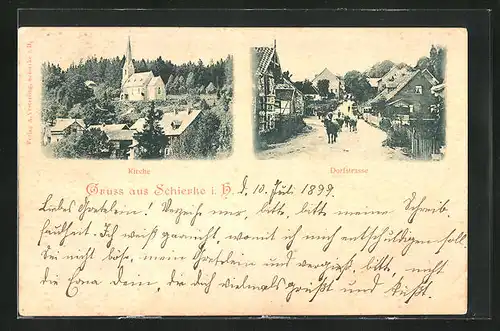 Verlag
Kirche
Dorfstrasse
Gruss aus Schierke i. H.
d. 10. Juli 1899.
Liebes Gretelein! Verzeih mir, bitte, bitte meine Schreib-
faulheit. Ich weiß garnicht, womit ich mich entschuldigen soll.
Sei nicht böse, mein Gretelein und vergiß, bitte, nicht
die Erna dein, die dich vielmals grüßt und küßt.